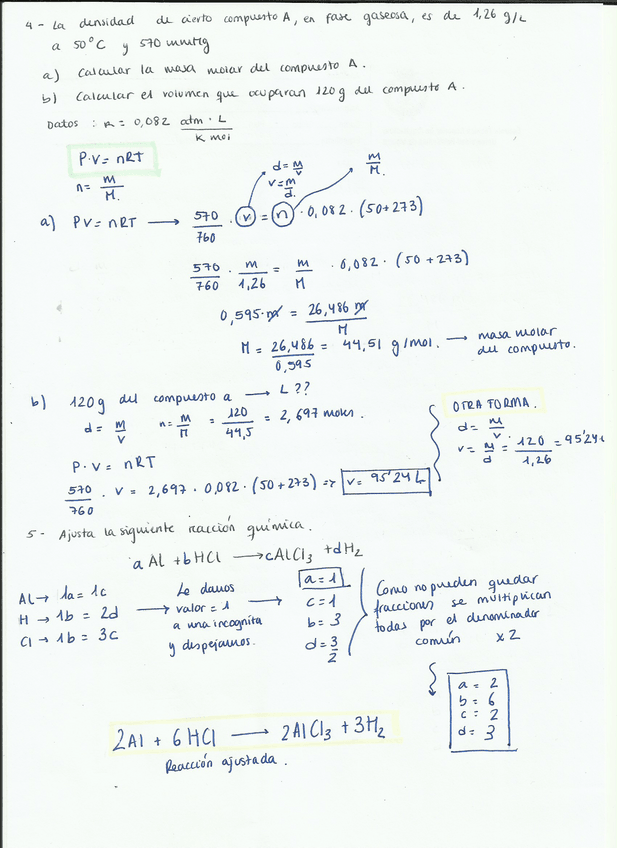 4 - La densidad de cierto compuesto A, en fase gaseosa, es de 1,26 g/L
a 50°C y 570 mmHg
a) Calcular la masa molar del compuesto A.
b) Calcular el volumen que ocuparan 120 g del compuesto A.
Datos : R = 0,082 atm · L / K mol
P·V = nRT
n = m/M.
d = m/v
v = m/d.
m/M.
a) PV = nRT → 570/760 · v = n · 0,082 · (50+273)
570/760 · m/1,26 = m/M · 0,082 · (50 + 273)
0,595 · m = 26,486 m / M
M = 26,486/0,595 = 44,51 g/mol. → masa molar
del compuesto.
b) 120 g del compuesto a → L ??
d = m/v n = m/M = 120/44,5 = 2,697 moles.
P·V = nRT
570/760 · V = 2,697 · 0,082 · (50 + 273) => V = 95'24 L
OTRA FORMA.
d = m/v.
v = m/d = 120/1,26 = 95'24 L
5 - Ajusta la siguiente reacción química.
a Al + b HCl → c AlCl₃ + d H₂
Al → 1a = 1c
H → 1b = 2d
Cl → 1b = 3c
→ Le damos
valor = 1
a una incognita
y despejamos.
→ a = 1
c = 1
b = 3
d = 3/2
Como no pueden quedar
fracciones se multiplican
todas por el denominador
común x 2
a = 2
b = 6
c = 2
d = 3
2Al + 6HCl → 2AlCl₃ + 3H₂
Reacción ajustada.